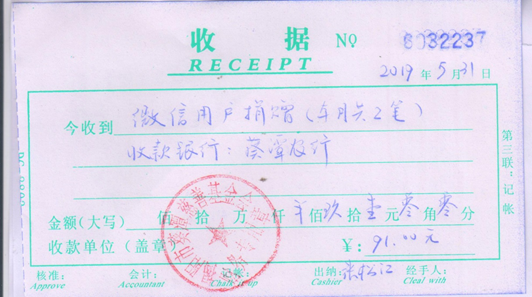 收据 NO 6032237
RECEIPT
2019年5月31日
今收到 微信用户捐赠(本月共2笔)
收款银行：蔡潭农行
金额(大写) 佰 拾 万 仟 佰玖拾壹元零角零分
收款单位(盖章) ¥：91.00元
核准： 会计： 记帐： 出纳： 经手人：
Approve Accountant Chalk It up Cashier Cleal with
第三联：记帐